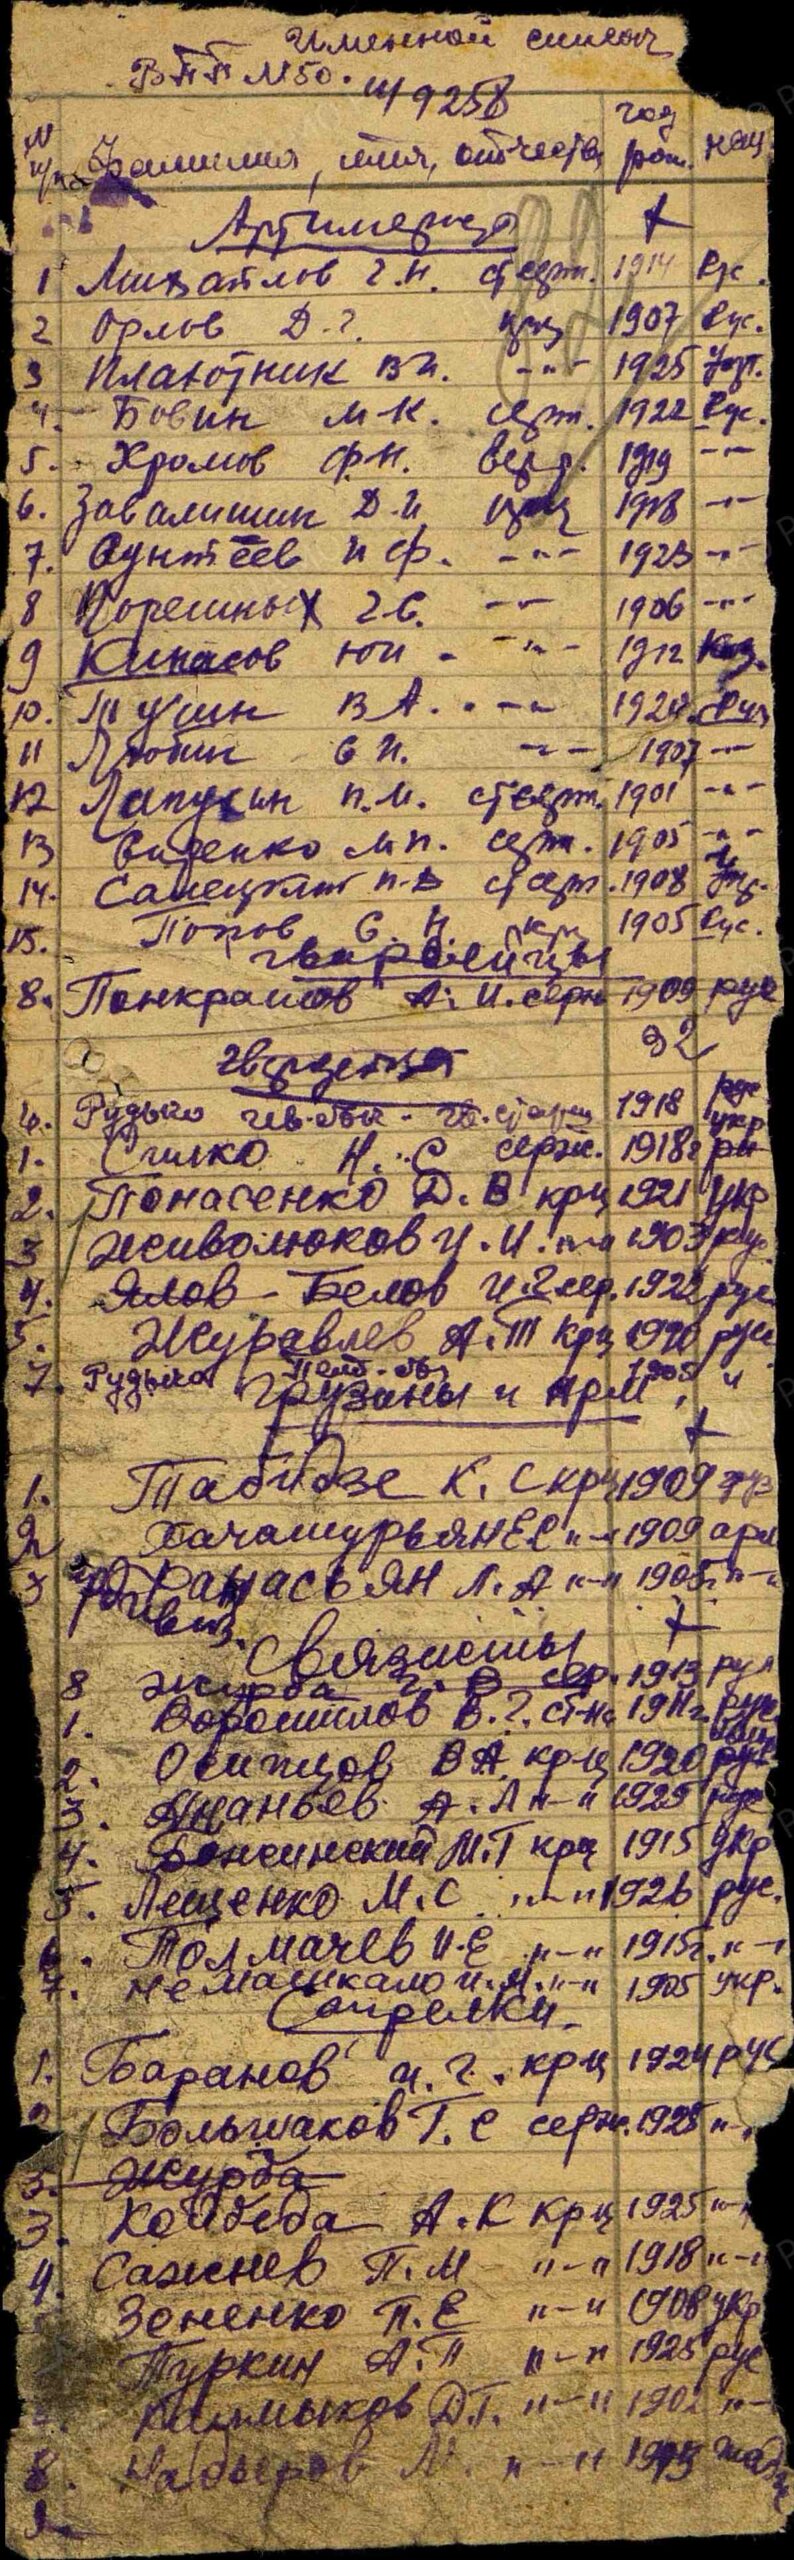 Именной список
ВПП №50. 9258
№ п/п Фамилия, имя, отчество год рож. нац
Артилерия
1 Михайлов Г.Н. ст серж. 1914 Рус.
2 Орлов Д.Г. крц 1907 Рус.
3 Плахотник В И. -"- 1925 Укр.
4. Бовин М К. серж. 1922 Рус.
5. Хромов Ф.Н. 1919 -"-
6. Завалишин Д.И крц 1918 -"-
7. Сунтеев И Ф. -"- 1923 -"-
8 Корешных Г.С. -"- 1906 -"-
9 Кинасов Ю И -"- 1912 Каз.
10. Тушин В А. -"- 192 Рус
11 Любин С И. -"- 1907 -"-
12 Лапушин П.И. ст серж. 1901 -"-
13 Сиренко М П. серж. 1905 -"-
14. Савецкий П-В ст серж. 1908 Укр.
15. Попов С. Н. крц 1905 Рус.
гвардейцы
8. Понкрашов А. И. серж 1909 рус
32
гвардейца
Рудыко 1918 рус
1. Силко Н. С серж. 1918г укр
2. Понасенко Д. В крц 1921 укр
3 Живолюков И. И. "-" 1903 рус
4. Ялов-Белов И.Г сер. 1922 рус
5. Журавлев А.Т крц 1920 рус
7. Рудыко 1905 "
Грузины и Арм.
1. Табидзе К. С крц 1909 груз
2 Хачатурьян Е С "-" 1909 арм
3 Л. А "-" 1905г. "-"
Связисты
8 Журба Г. В сер. 1913 рус
1. Ворошилов В. Г. 1911г. рус
2. Осипцов В А. крц 1920 рус
3. Ананьев А. Л "-" 1925 рус
4. М.Т крц 1915 укр
5. Лещенко М. С "-" 1926 рус.
6. Толмачев И. Е "-" 1915г. "-"
7. Немашкало И. М. "-" 1905 укр.
Стрелки.
1. Баранов И. Г. крц 1924 рус
2 Большаков Г. С серж. 1925 "-"
3. Журба
3. Койбеда А. К крц 1925 "-"
4. Сажнев П. М "-" 1918 "-"
Зененко П. Е "-" 1908 укр
Туркин А. П "-" 1925 рус
Калмыков Д.Г. "-" 1902 "-"
8. Набыеров М. "-" 1913
9